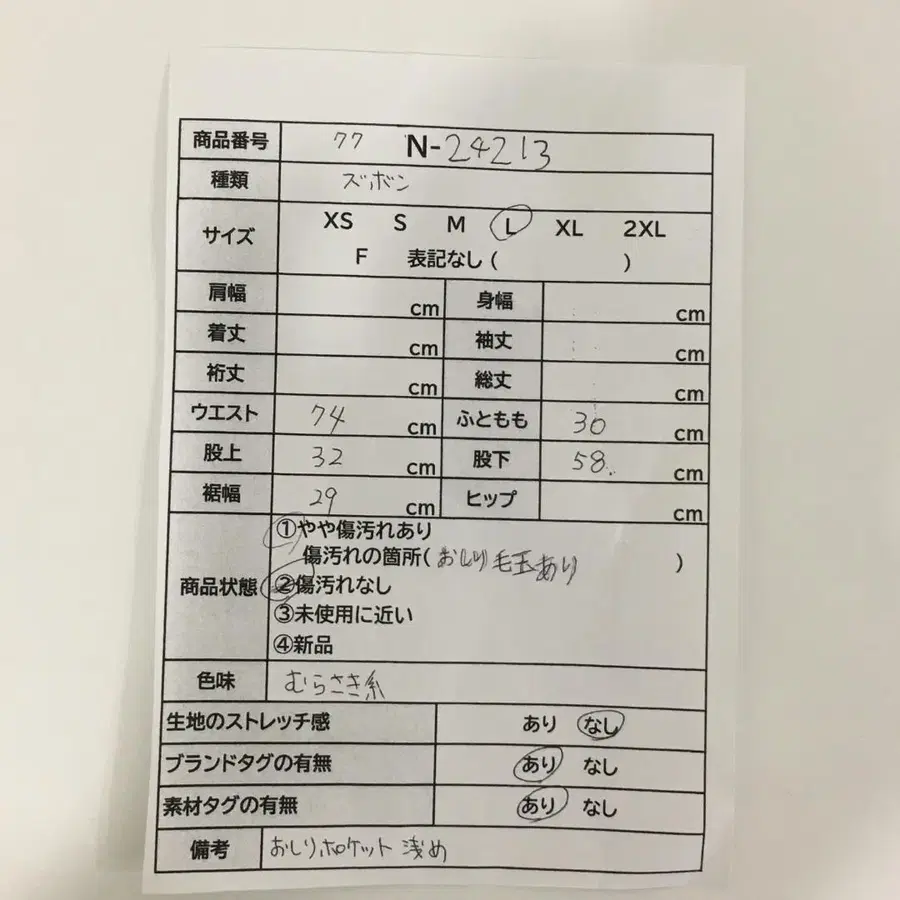 商品番号 77 N-24213
種類 ズボン
サイズ XS S M L XL 2XL
F 表記なし ( )
肩幅 cm 身幅 cm
着丈 cm 袖丈 cm
裄丈 cm 総丈 cm
ウエスト 74 cm ふともも 30 cm
股上 32 cm 股下 58 cm
裾幅 29 cm ヒップ cm
商品状態 ①やや傷汚れあり
傷汚れの箇所( おしり毛玉あり )
②傷汚れなし
③未使用に近い
④新品
色味 むらさき系
生地のストレッチ感 あり なし
ブランドタグの有無 あり なし
素材タグの有無 あり なし
備考 おしりポケット 浅め